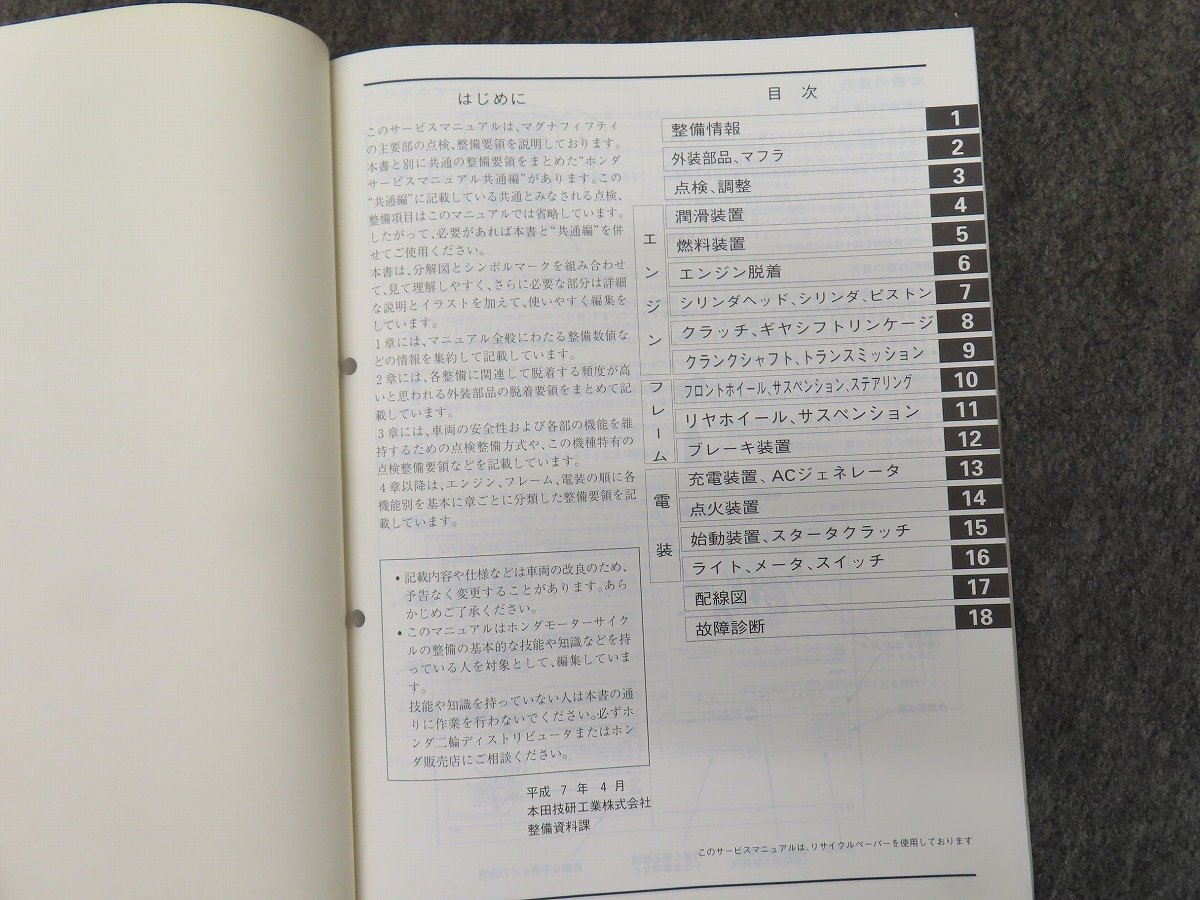 はじめに
このサービスマニュアルは、マグナフィフティ
の主要部の点検、整備要領を説明しております。
本書と別に共通の整備要領をまとめた“ホンダ
サービスマニュアル共通編”があります。この
“共通編”に記載している共通とみなされる点検、
整備項目はこのマニュアルでは省略しています。
したがって、必要があれば本書と“共通編”を併
せてご使用ください。
本書は、分解図とシンボルマークを組み合わせ
て、見て理解しやすく、さらに必要な部分は詳細
な説明とイラストを加えて、使いやすく編集を
しています。
1章には、マニュアル全般にわたる整備数値な
どの情報を集約して記載しています。
2章には、各整備に関連して脱着する頻度が高
いと思われる外装部品の脱着要領をまとめて記
載しています。
3章には、車両の安全性および各部の機能を維
持するための点検整備方式や、この機種特有の
点検整備要領などを記載しています。
4章以降は、エンジン、フレーム、電装の順に各
機能別を基本に章ごとに分類した整備要領を記
載しています。
• 記載内容や仕様などは車両の改良のため、
予告なく変更することがあります。あら
かじめご了承ください。
• このマニュアルはホンダモーターサイク
ルの整備の基本的な技能や知識などを持
っている人を対象として、編集していま
す。
技能や知識を持っていない人は本書の通
りに作業を行わないでください。必ずホ
ンダ二輪ディストリビュータまたはホン
ダ販売店にご相談ください。
平成 7 年 4 月
本田技研工業株式会社
整備資料課
目 次
整備情報 1
外装部品、マフラ 2
点検、調整 3
エンジン
潤滑装置 4
燃料装置 5
エンジン脱着 6
シリンダヘッド、シリンダ、ピストン 7
クラッチ、ギヤシフトリンケージ 8
クランクシャフト、トランスミッション 9
フレーム
フロントホイール、サスペンション、ステアリング 10
リヤホイール、サスペンション 11
ブレーキ装置 12
電装
充電装置、ACジェネレータ 13
点火装置 14
始動装置、スタータクラッチ 15
ライト、メータ、スイッチ 16
配線図 17
故障診断 18
このサービスマニュアルは、リサイクルペーパーを使用しております